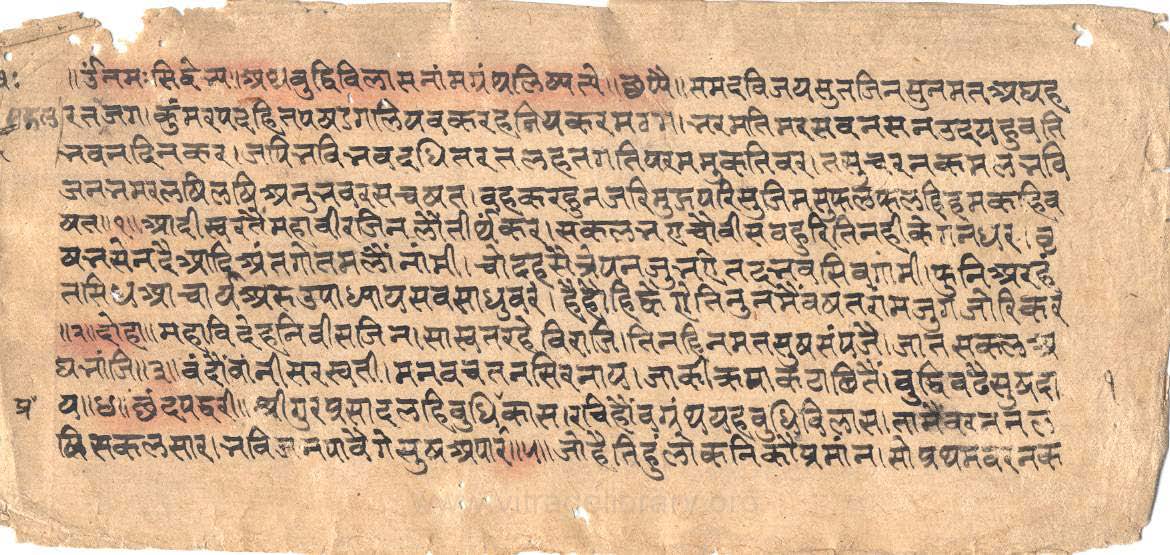 ॥ उंनमः सिद्धेभ्यः ॥ अथ बुद्धिविलास नांम ग्रंथ लिख्यते ॥ छप्पै ॥ समदविजय सुत जिन सु नमत अघ ह
रत जगत । कुंमर पद हि तप लियव कर हनिय करम । भरम तिमर सब नसन उदय हुव ति
भवन दिनकर । भवि भवदधि तरत लहत गति परम मुकति वर । तसु चरन कमल भवि
जन भमर लषि लषि अनुभव रस चषत । वुह करहु नजरि मुझ परि सु जिम सुफल फलहि हम कहि व
षत ॥१॥ आदीस्वर तैं महावीर जिन लौं तीर्थंकर । सकल भए चौवीस बहुरि तिनही के गनधर । वृ
षभसेन दै आदि अंत गोतम लौं नांमी । चौदह सै त्रेपन जु भऐ तद्भव सिवगांमी । फुनि अरहं
त सिध आचार्य अरु उपाध्याय सब साधु वर । हैं होहिंगे ऐ तिनु नमैं वषतराम जुग जोरि कर
॥२॥ दोहा ॥ महाविदेहनि वीस जिन । सास्वत रहे विराजि । तिनहि नमत सुष संपजै । जात सकल अ
घ भाजि ॥३॥ वंदौं वांनी सरस्वती । मन वच तन सिर नाय । जाकी क्रपा कटाछि तैं । बुद्धि वढै सुषदा
य ॥४॥ छंद पद्धरी ॥ श्रीगुर प्रसाद लहि बुधि प्रकास । रचिहौं व ग्रंथ यह बुधिविलास । तामै वरनन ल
षि सकल सार । भविजन पावैंगे सुष अपार ॥५॥ जो है तिहु लोकनि कौ प्रमांन । सो प्रथम वरनक
www.vitragelibrary.org